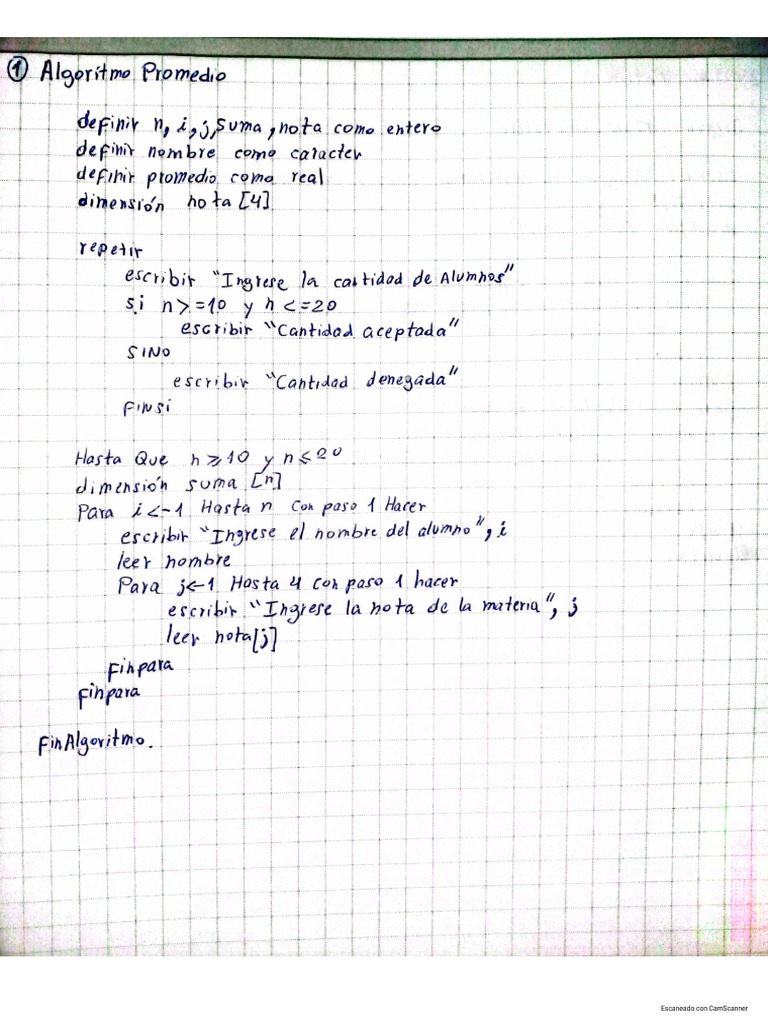 ① Algoritmo Promedio
definir n, i, j, suma, nota como entero
definir nombre como caracter
definir promedio como real
dimensión nota [4]
repetir
escribir "Ingrese la cantidad de Alumnos"
si n >= 10 y n <= 20
escribir "Cantidad aceptada"
SINO
escribir "Cantidad denegada"
FINSi
Hasta Que n ⩾ 10 y n ⩽ 20
dimensión suma [n]
Para i <- 1 Hasta n con paso 1 Hacer
escribir "Ingrese el nombre del alumno", i
leer nombre
Para j <- 1 Hasta 4 con paso 1 hacer
escribir "Ingrese la nota de la materia", j
leer nota[j]
Finpara
Finpara
FinAlgoritmo.
Escaneado con CamScanner